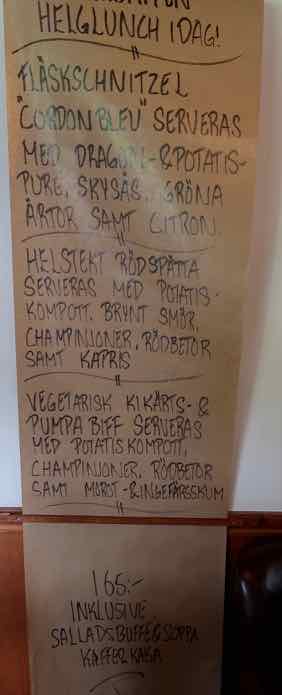 HELGLUNCH IDAG!
FLÄSKSCHNITZEL
"CORDON BLEU" SERVERAS
MED DRAGON-&POTATIS-
PURE, SKYSÅS, GRÖNA
ÄRTOR SAMT CITRON.
HELSTEKT RÖDSPÄTTA
SERVERAS MED POTATIS-
KOMPOTT, BRYNT SMÖR,
CHAMPINJONER, RÖDBETOR
SAMT KAPRIS
VEGETARISK KIKÄRTS- &
PUMPA BIFF SERVERAS
MED POTATISKOMPOTT,
CHAMPINJONER, RÖDBETOR
SAMT MOROT-&INGEFÄRSSKUM
165:-
INKLUSIVE
SALLADSBUFFE&SOPPA
KAFFE&KAKA